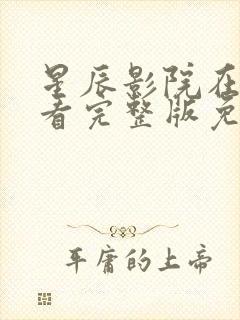 星辰影院在
看完整版免
平庸的上帝